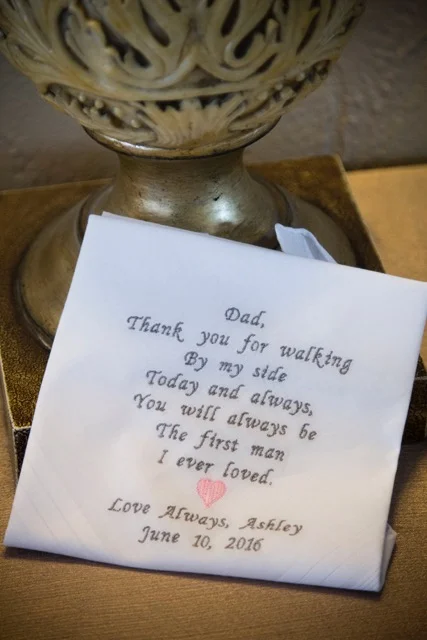 Dad,
Thank you for walking
By my side
Today and always,
You will always be
The first man
I ever loved.
Love Always, Ashley
June 10, 2016